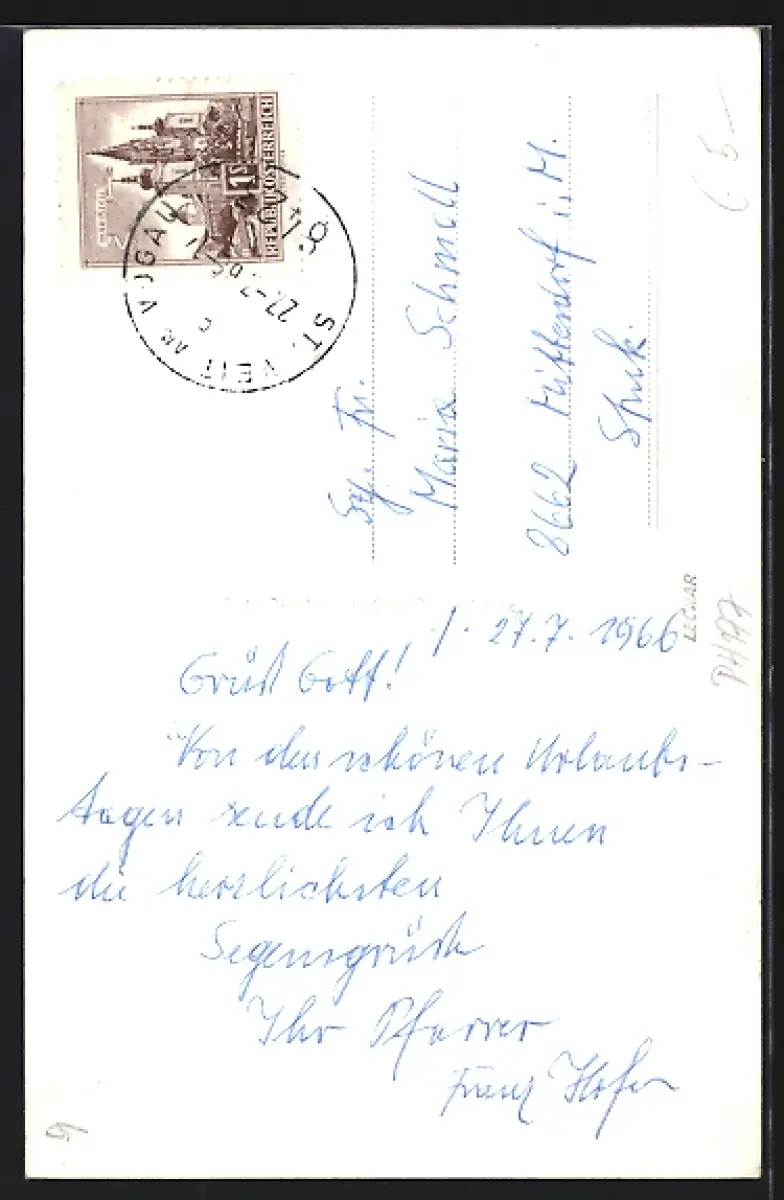 REPUBLIK ÖSTERREICH
1S
ST. VEIT AN
27.-7.
c
Fr.
Maria Schmoll
8662 Mitterdorf i. M.
Stmk.
LECKAR
PH 177
27.7.1966
Grüß Gott!
Von den schönen Urlaubs-
tagen sende ich Ihnen
die herzlichsten
Segensgrüße
Ihr Pfarrer
Franz Hofer